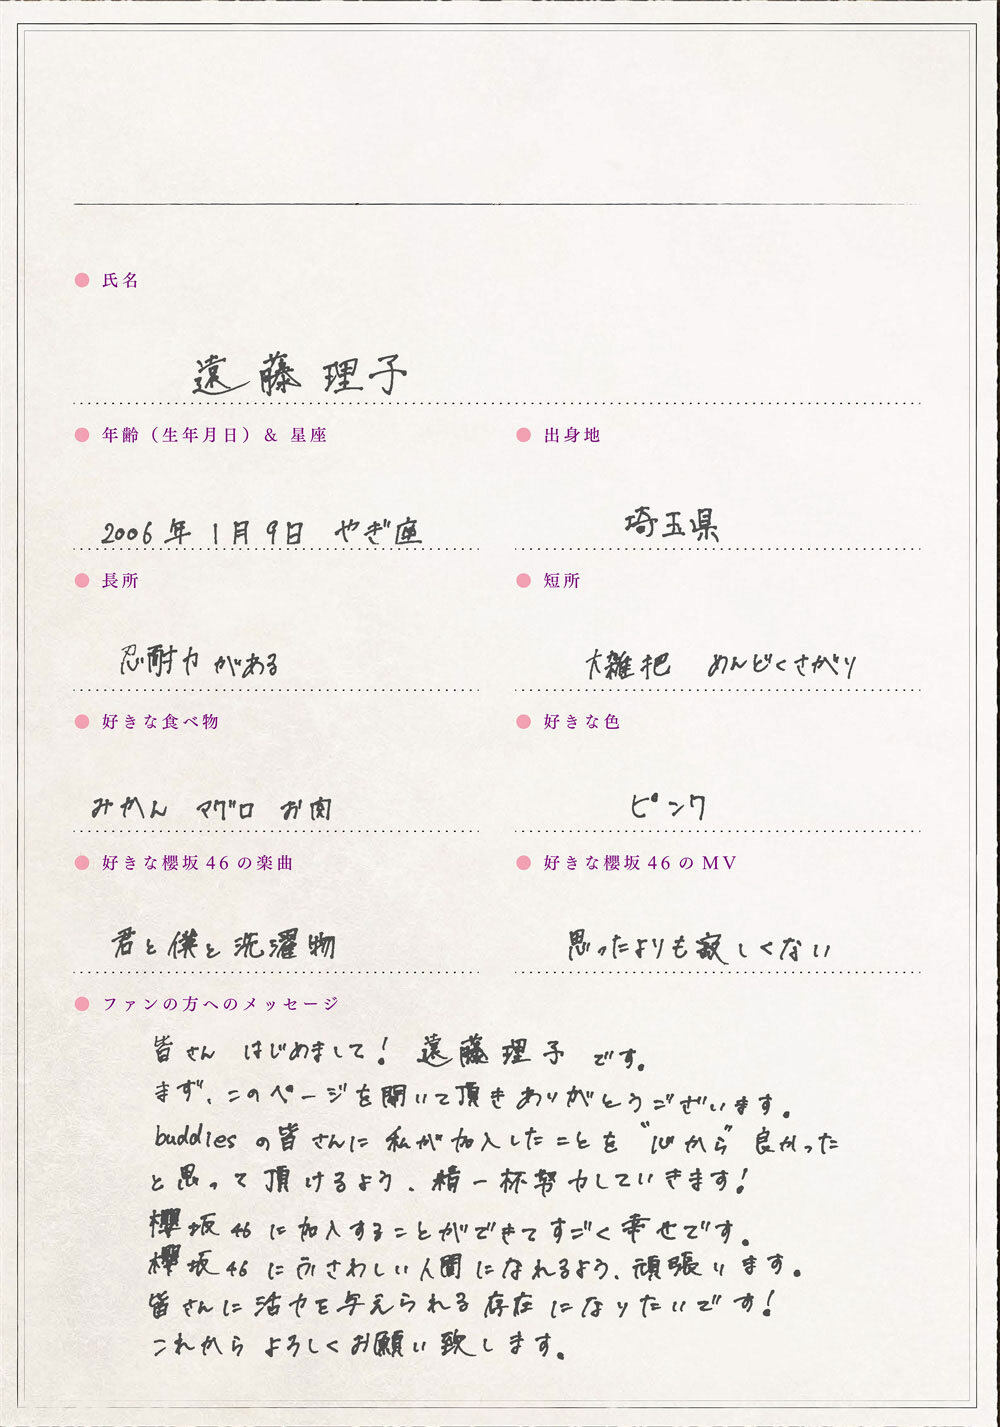 氏名
遠藤理子
年齢（生年月日）& 星座
出身地
2006年 1月9日 やぎ座
埼玉県
長所
短所
忍耐力がある
大雑把 めんどくさがり
好きな食べ物
好きな色
みかん マグロ お肉
ピンク
好きな櫻坂46の楽曲
好きな櫻坂46のMV
君と僕と洗濯物
思ったよりも寂しくない
ファンの方へのメッセージ
皆さん はじめまして! 遠藤理子です。
まず、このページを開いて頂きありがとうございます。
buddiesの皆さんに私が加入したことを"心から"良かった
と思って頂けるよう、精一杯努力していきます!
櫻坂46に加入することができてすごく幸せです。
櫻坂46にふさわしい人間になれるよう、頑張ります。
皆さんに活力を与えられる存在になりたいです!
これからよろしくお願い致します。